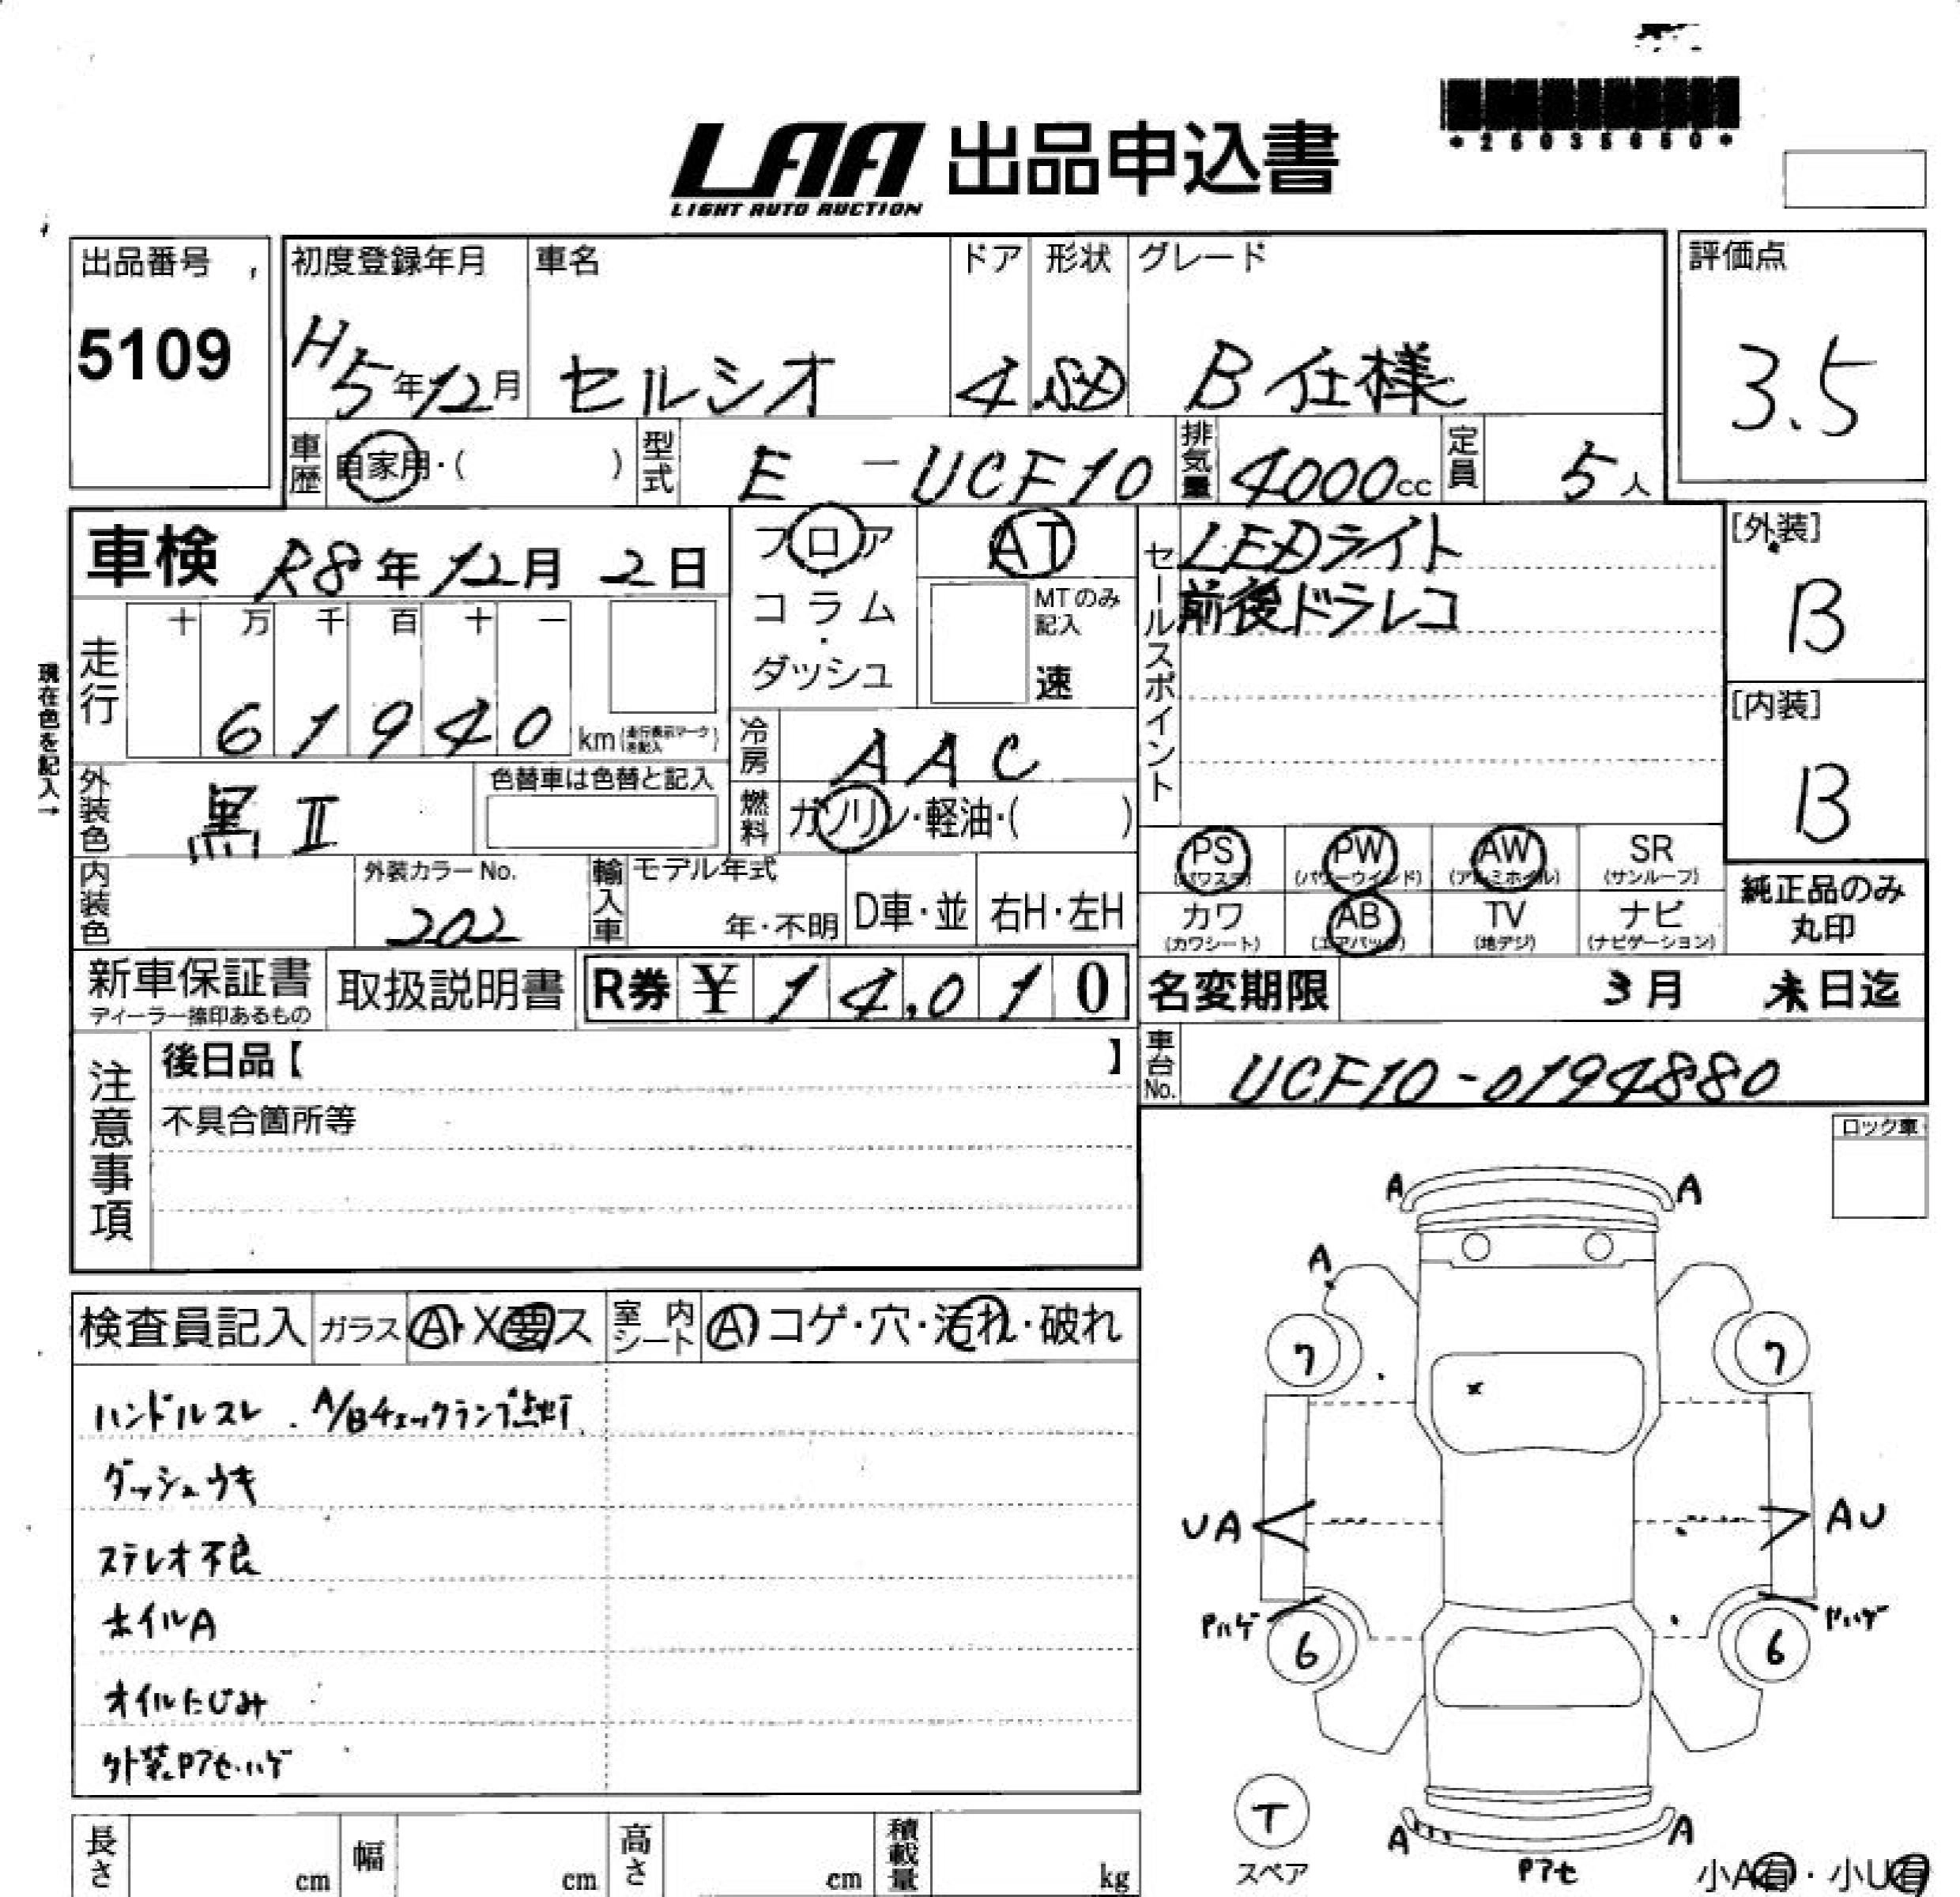 *25035650*
LAA 出品申込書
LIGHT AUTO AUCTION
出品番号
5109
初度登録年月
H5年12月
車名
セルシオ
ドア
4
形状
SD
グレード
B仕様
評価点
3.5
車歴
自家用・( )
型式
E - UCF10
排気量
4000cc
定員
5人
車検 R8年12月2日
フロア
・
コラム
・
ダッシュ
AT
MTのみ
記入
速
セールスポイント
LEDライト
前後ドラレコ
[外装]
B
[内装]
B
現在色を記入→
走行
十 万 千 百 十 一
6 1 9 4 0 km(走行表示マークを記入)
冷房
AAC
燃料
ガソリン・軽油・( )
外装色
黒II
色替車は色替と記入
内装色
外装カラーNo.
202
輸入車
モデル年式
年・不明
D車・並
右H・左H
PS
(パワステ)
PW
(パワーウインド)
AW
(アルミホイル)
SR
(サンルーフ)
カワ
(カワシート)
AB
(エアバッグ)
TV
(地デジ)
ナビ
(ナビゲーション)
純正品のみ
丸印
新車保証書
ディーラー捺印あるもの
取扱説明書
R券 ¥ 14,010
名変期限 3月 末日迄
車台No.
UCF10-0194880
注意事項
後日品【 】
不具合箇所等
ロック車
検査員記入
ガラス
A・X要ス
室内シート
A コゲ・穴・汚れ・破れ
ハンドルスレ . A/Bチェックランプ点灯
ダッシュウキ
ステレオ不良
ホイルA
オイルにじみ
外装Pアセ・ハゲ
A A
A
7 7
x
UA AU
Pハゲ Pハゲ
6 6
T
スペア
A A
Pアセ
小A有・小U有
長さ cm
幅 cm
高さ cm
積載量 kg